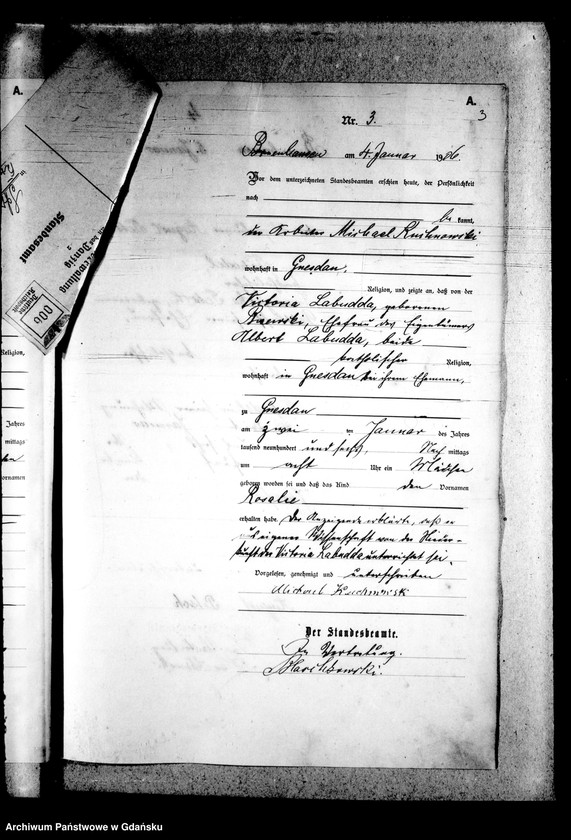 A.
A.
3
Nr. 3.
am 4. Januar 1906.
Vor dem unterzeichneten Standesbeamten erschien heute, der Persönlichkeit
nach
be kannt,
der Arbeiter Michael
wohnhaft in Gnesdau,
Religion, und zeigte an, daß von der
Victoria Labudda, geborenen
Ehefrau des Eigentümers
Albert Labudda, beide
katholischer Religion,
wohnhaft in Gnesdau bei ihrem Ehemann,
zu Gnesdau
am zwei ten Januar des Jahres
tausend neunhundert und sechs, Nach mittags
um acht Uhr ein Mädchen
geboren worden sei und daß das Kind den Vornamen
Rosalie
erhalten habe. Der Anzeigende erklärte, daß er
aus eigener Wissenschaft von der Nieder-
kunft der Victoria Labudda unterrichtet sei.
Vorgelesen, genehmigt und unterschrieben
Michael
Der Standesbeamte.
In Vertretung.
Standesamt
Danzig
900
Religion,
Jahres
mittags
Vornamen
Archiwum Państwowe w Gdańsku